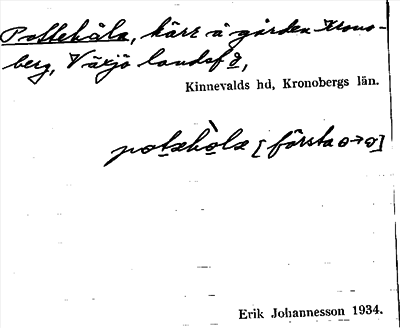 Pottehåla, kärr å gården Krono-
berg, Växjö landsf å,
Kinnevalds hd, Kronobergs län.
[första o→
Erik Johannesson 1934.